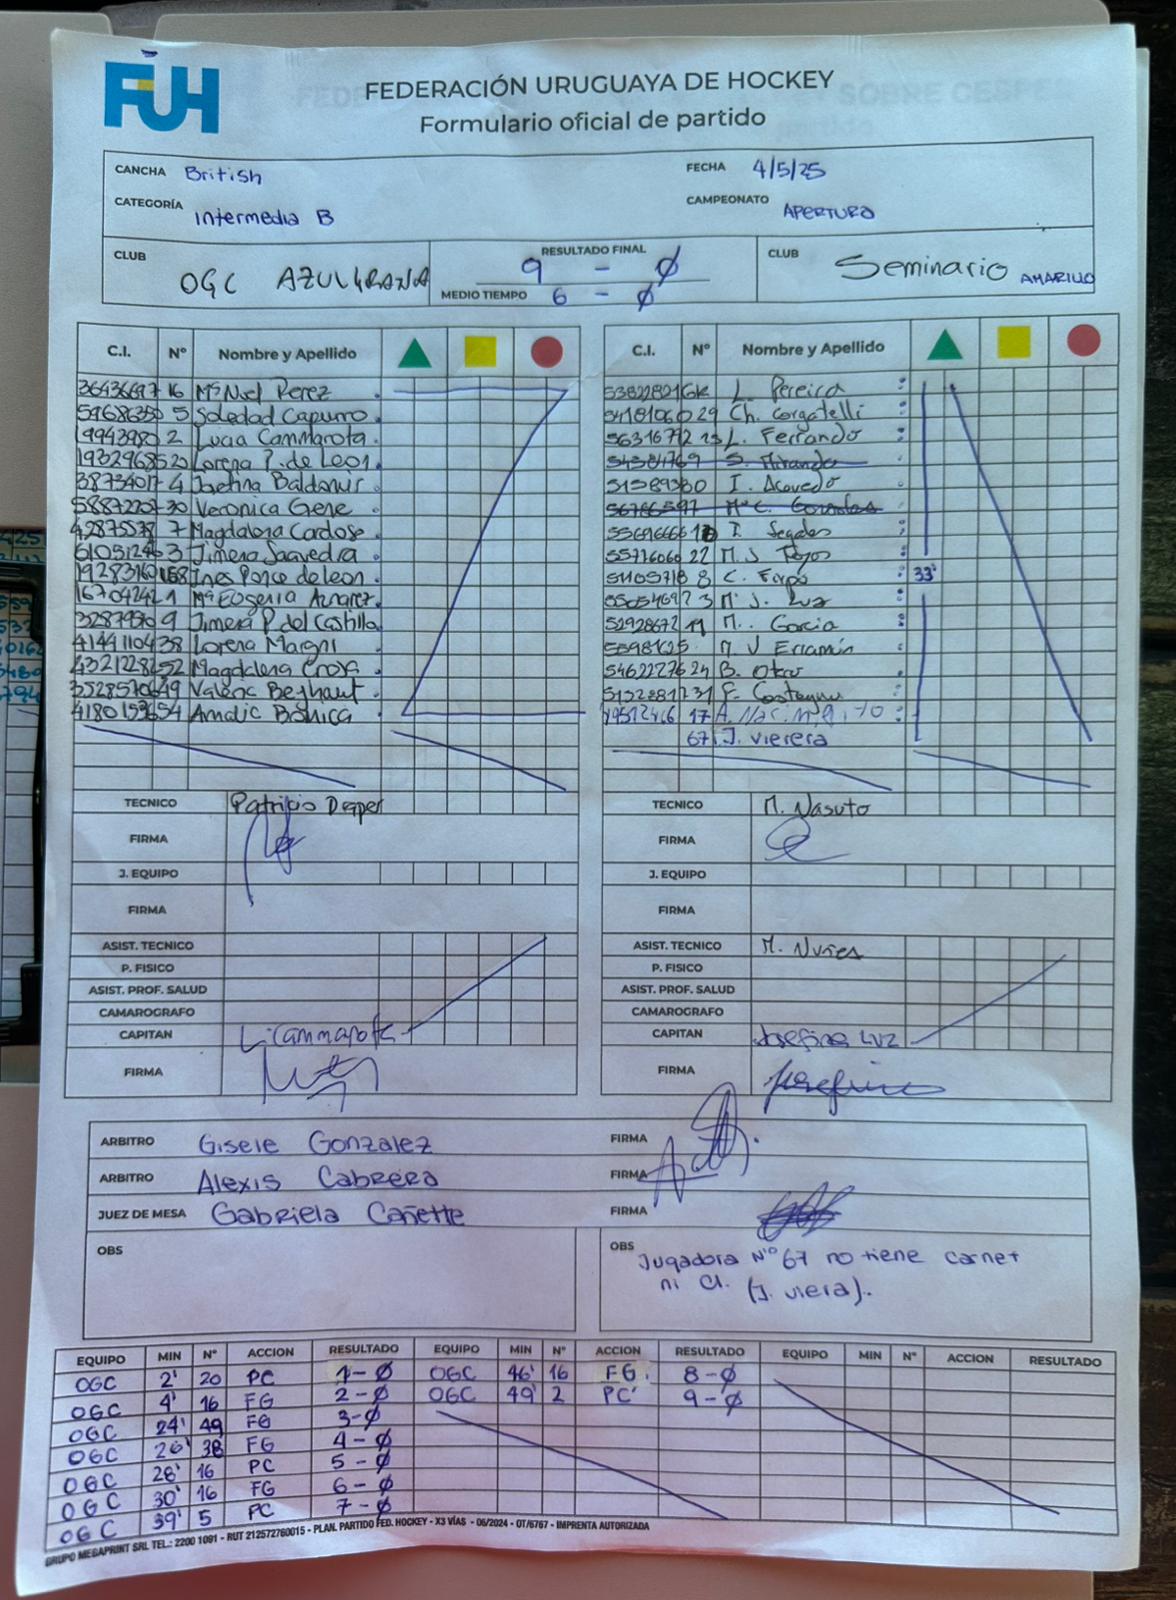 FUH
FEDERACIÓN URUGUAYA DE HOCKEY
Formulario oficial de partido
CANCHA British FECHA 4/5/25
CATEGORÍA Intermedia B CAMPEONATO APERTURA
CLUB OGC AZULGRANA RESULTADO FINAL 9 - Ø CLUB Seminario AMARILLO
MEDIO TIEMPO 6 - Ø
C.I. Nº Nombre y Apellido C.I. Nº Nombre y Apellido
36436697 16 Mª Noel Perez 53822821 GK L. Pereira
59686350 5 Soledad Capurro 54181060 29 Ch.
19943980 2 Lucia Cammarota 56316792 L. Ferrando
19329685 20 Lorena P. de Leon 54384769 S. Miranda
38734017 4 Josefina Baldomir 51589380 I. Acevedo
58872207 30 Veronica Gene 56786597 Mª C. Gonzales
42875578 7 Magdalena Cardoso 55696666 I. Segales
61051246 3 Jimena Saavedra 55776060 22 M. J.
19283160 Ines Ponce de leon 51105718 8 C. 33'
16704242 1 Mª Eugenia Aznarez 55054697 3 Mª J. Luz
32879510 9 Jimena P. del Castillo 52928672 11 M. Garcia
41441104 38 Lorena Magni M V Erramún
43212286 52 Magdalena 54622776 24 B.
35285706 49 Valeria Beyhaut 51522817 31 F.
41801536 54 Amalic 17 A.
67 J. vierera
TECNICO Patricio TECNICO M. Nasuto
FIRMA FIRMA
J. EQUIPO J. EQUIPO
FIRMA FIRMA
ASIST. TECNICO ASIST. TECNICO M. Nuñes
P. FISICO P. FISICO
ASIST. PROF. SALUD ASIST. PROF. SALUD
CAMAROGRAFO CAMAROGRAFO
CAPITAN L. Cammarota CAPITAN Josefina Luz
FIRMA FIRMA Josefina
ARBITRO Gisele Gonzalez FIRMA
ARBITRO Alexis Cabrera FIRMA
JUEZ DE MESA Gabriela Cañette FIRMA
OBS OBS Jugadora Nº 67 no tiene carnet
ni CI. (J. viera).
EQUIPO MIN Nº ACCION RESULTADO EQUIPO MIN Nº ACCION RESULTADO EQUIPO MIN Nº ACCION RESULTADO
OGC 2' 20 PC 1-Ø OGC 46' 16 FG. 8-Ø
OGC 4' 16 FG 2-Ø OGC 49' 2 PC' 9-Ø
OGC 24' 49 FG 3-Ø
OGC 26' 38 FG 4-Ø
OGC 28' 16 PC 5-Ø
OGC 30' 16 FG 6-Ø
OGC 39' 5 PC 7-Ø
GRUPO MEGAPRINT SRL TEL.: 2200 1091 - RUT 212572760015 - PLAN. PARTIDO FED. HOCKEY - X3 VÍAS - 06/2024 - OT/6767 - IMPRENTA AUTORIZADA